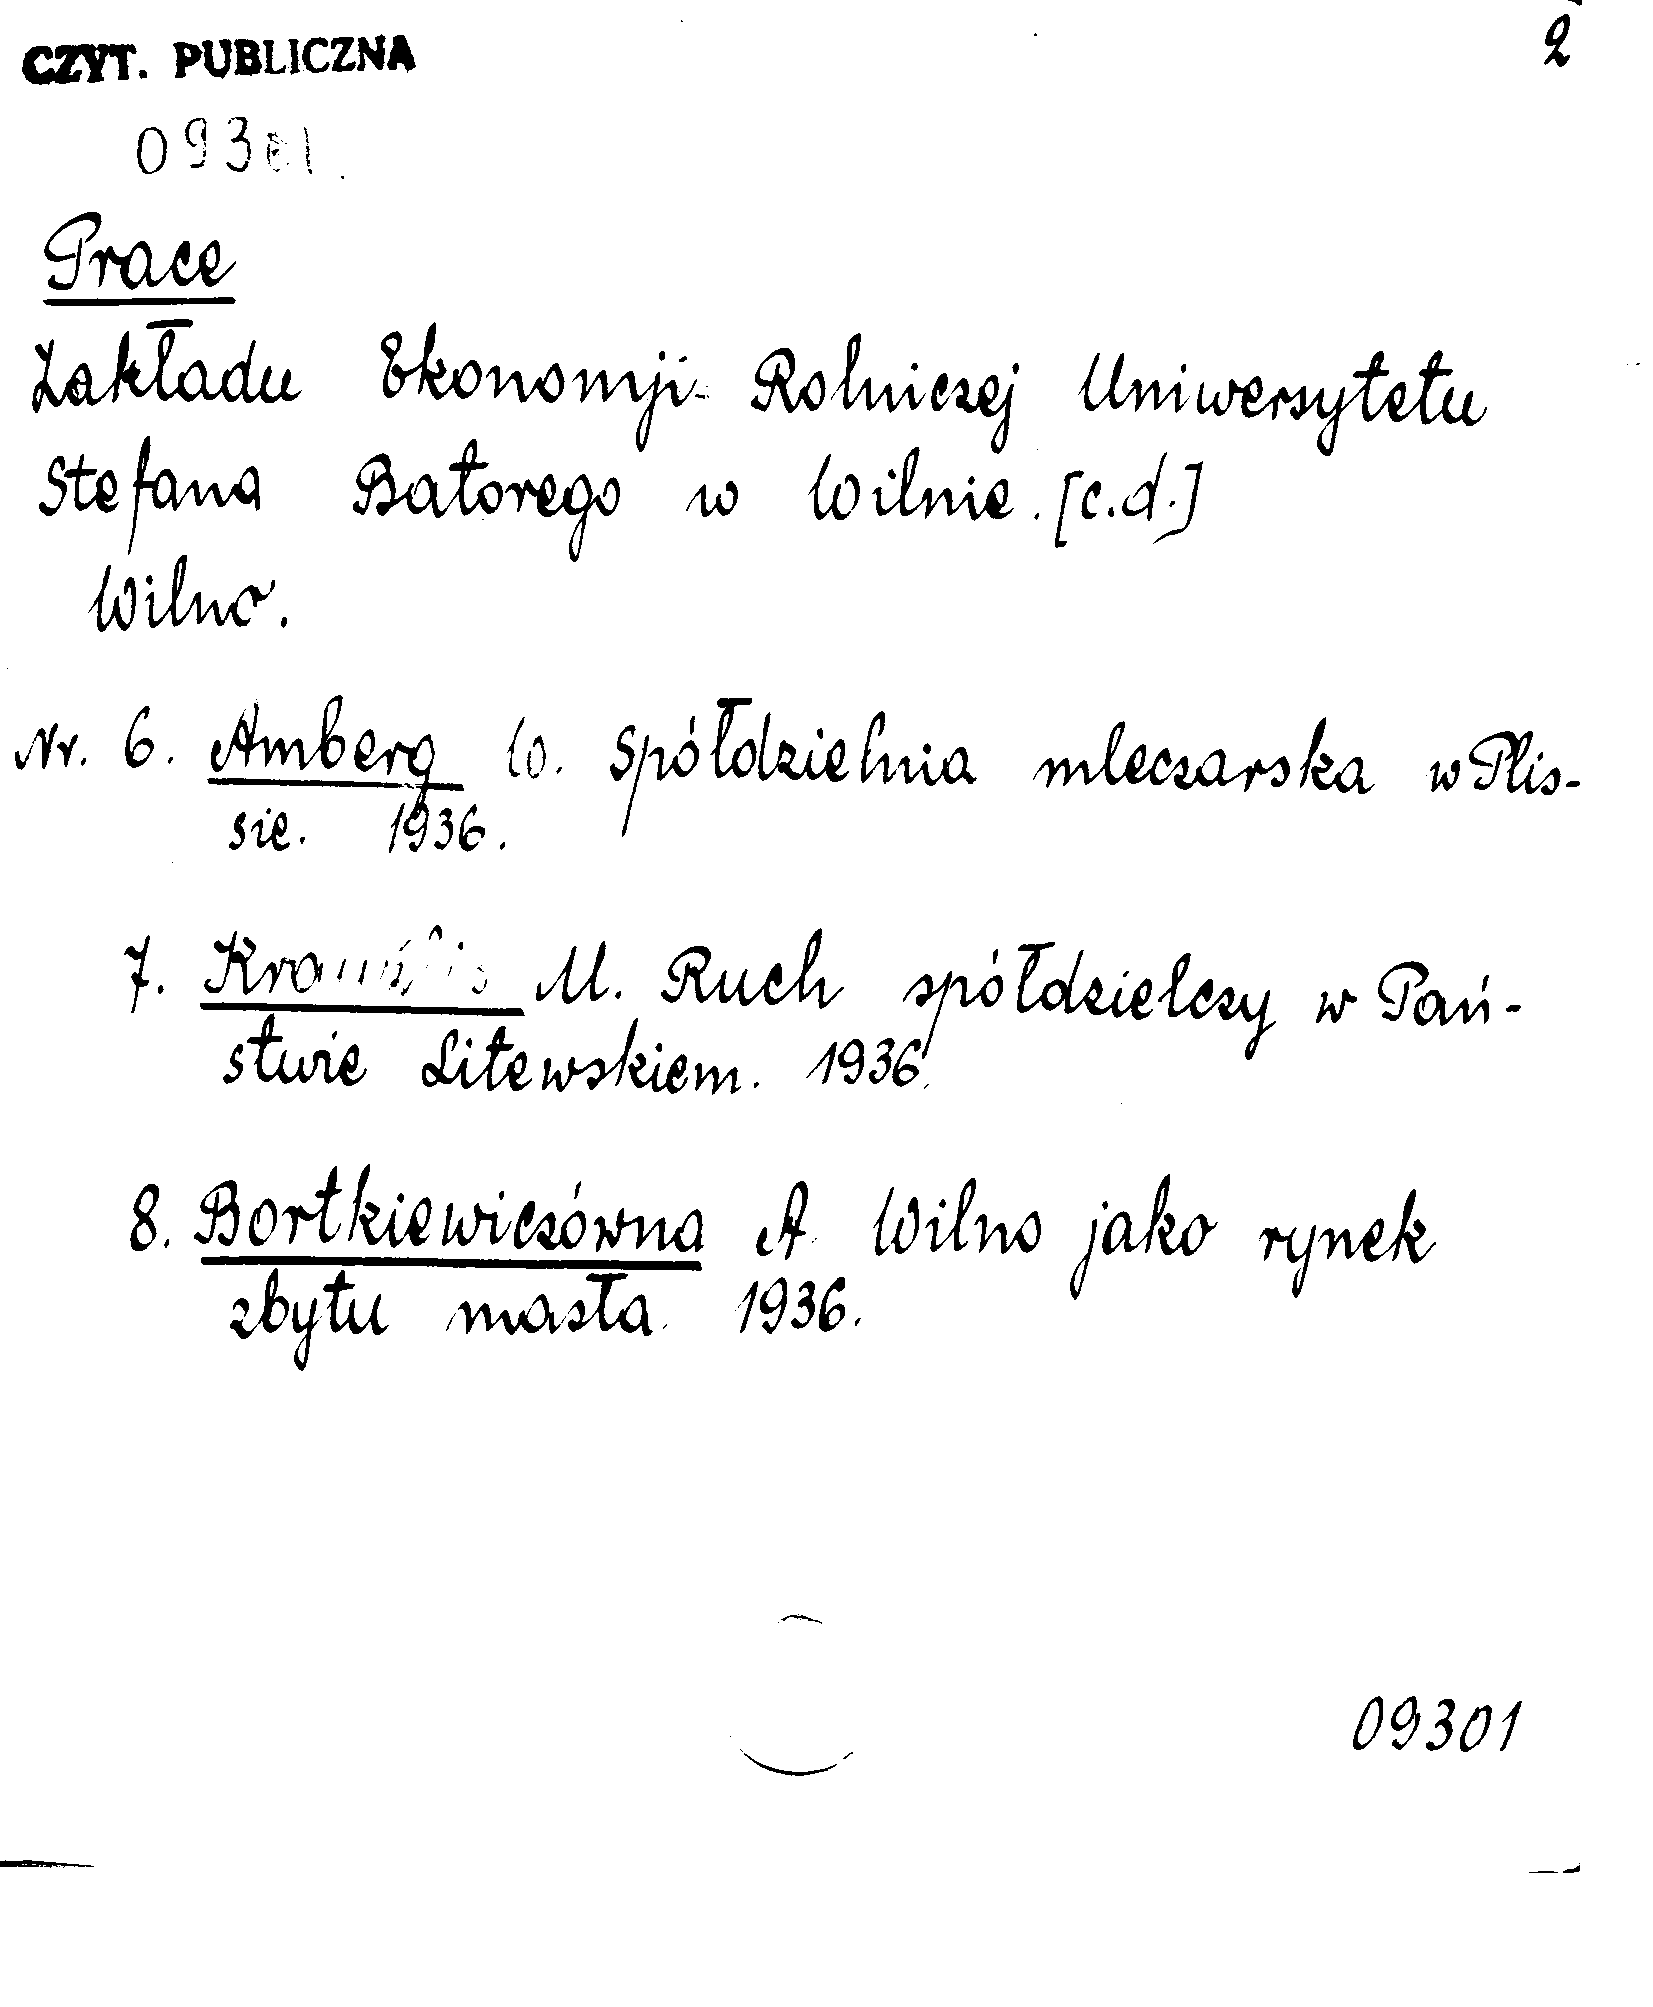 CZYT. PUBLICZNA
2
09301.
Prace
Zakładu Ekonomji Rolniczej Uniwersytetu
Stefana Batorego w Wilnie. [c.d.]
Wilno.
Nr. 6. Amberg W. Spółdzielnia mleczarska w Plis-
sie. 1936.
7. M. Ruch spółdzielczy w Pań-
stwie Litewskiem. 1936.
8. Bortkiewiczówna A. Wilno jako rynek
zbytu masła. 1936.
09301